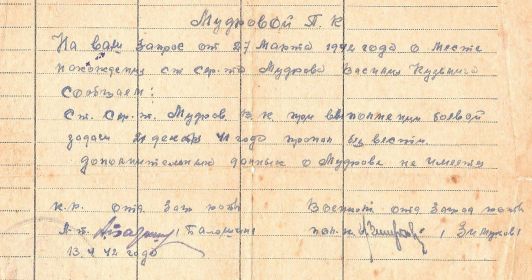 Мудровой П. К
На ваш запрос от 27 Марта 1942 года о месте
нахождения ст сер-та Мудрова Василия Кузьмича
сообщаем:
Ст. Сер. т. Мудров В. К при выполнении боевой
задачи 21 декабр 41 года пропал без вести.
дополнительных данных о Мудрове не имеется
к.р. отд. Заг роты Военком отд Заград роты
13. 4 42 года